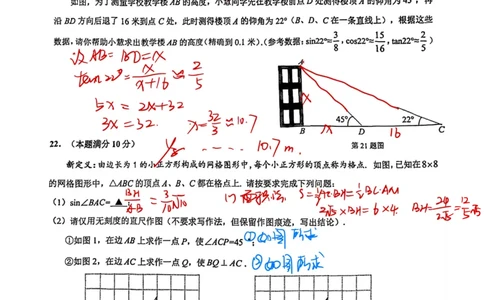 如图，为了测量学校教学楼 AB 的高度，小慧同学先在教学楼前点 D 处测得楼顶 A 的仰角为 45°，再
沿 BD 方向后退了 16 米到点 C 处，此时测得楼顶 A 的仰角为 22°（B、D、C 在一条直线上），根据这些
数据，请你帮助小慧求出教学楼 AB 的高度（精确到 0.1 米）.（参考数据：sin22°≈3/8，cos22°≈15/16，tan22°≈2/5）
设 AB=BD=x
tan22°= x/(x+16) ≈ 2/5
5x = 2x+32
3x = 32. x=32/3≈10.7
10.7m.
A
x
45° 22°
B x D 16 C
第 21 题图
22. （本题满分 10 分）
新定义：由边长为 1 的小正方形构成的网格图形中，每个小正方形的顶点称为格点. 如图，已知在 8×8
的网格图形中，△ABC 的顶点 A、B、C 都在格点上. 请按要求完成下列问题：
(1) sin∠BAC= ▲ BH/AB = 3/10 √10
S=½AC·BH=½BC·AM
2√5×BH=6×4 BH=24/2√5=12/5 √5
(2) 请仅用无刻度的直尺作图（不要求写作法，但保留作图痕迹，写出结论）.
①如图 1，在边 AB 上求作一点 P，使∠ACP=45°；①如图所求
②如图 2，在边 AC 上求作一点 Q，使 BQ⊥AC. ②如图所求